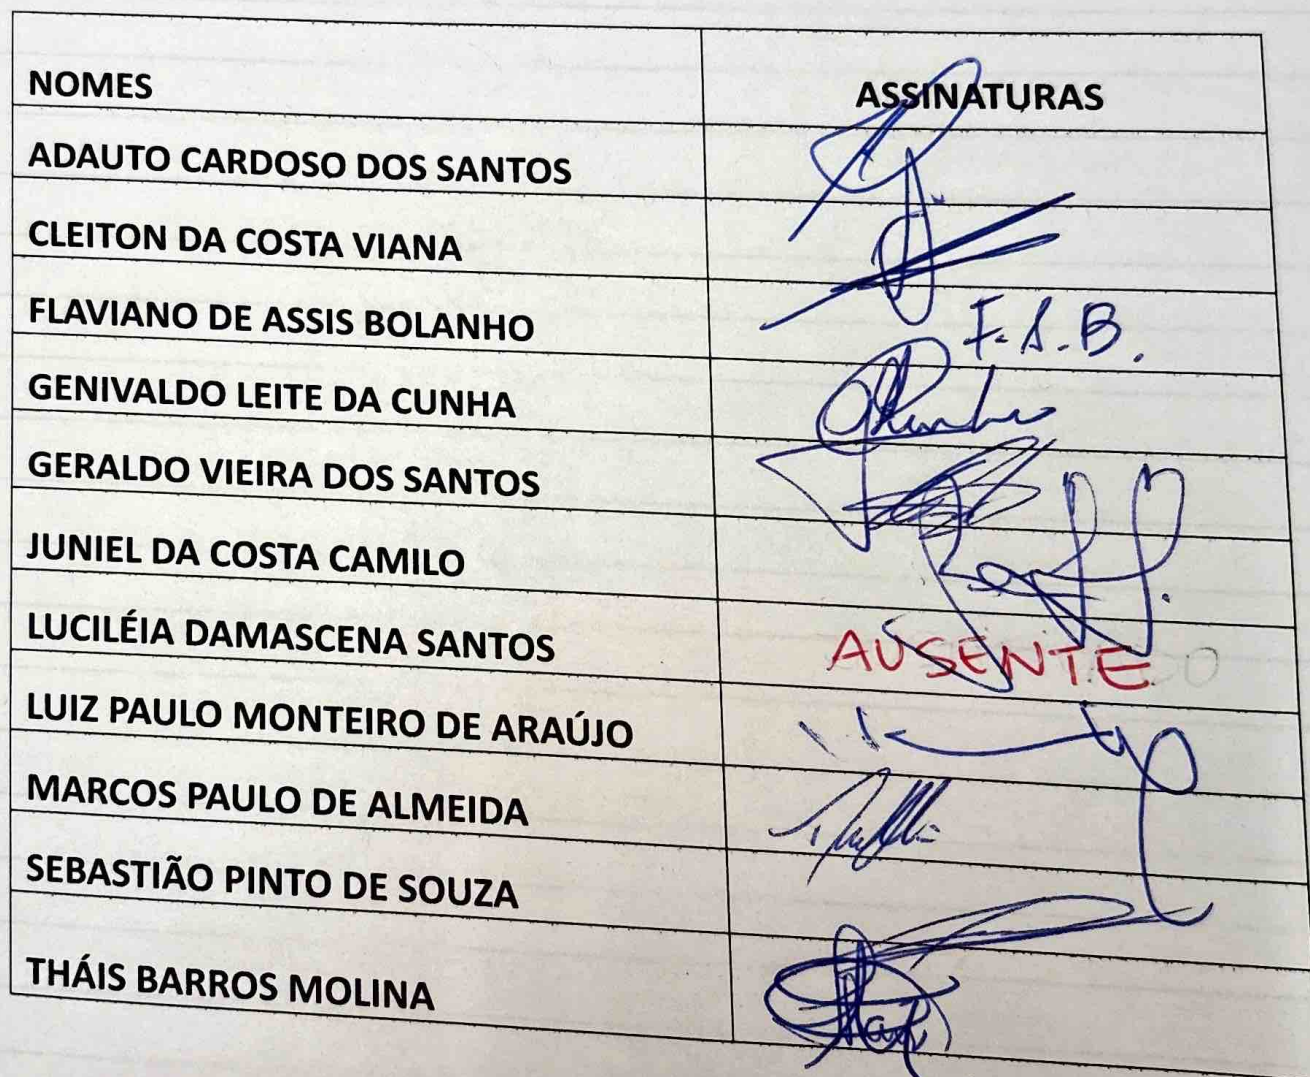 NOMES ASSINATURAS
ADAUTO CARDOSO DOS SANTOS
CLEITON DA COSTA VIANA
FLAVIANO DE ASSIS BOLANHO F.A.B.
GENIVALDO LEITE DA CUNHA
GERALDO VIEIRA DOS SANTOS
JUNIEL DA COSTA CAMILO
LUCILÉIA DAMASCENA SANTOS AUSENTE
LUIZ PAULO MONTEIRO DE ARAÚJO
MARCOS PAULO DE ALMEIDA
SEBASTIÃO PINTO DE SOUZA
THÁIS BARROS MOLINA